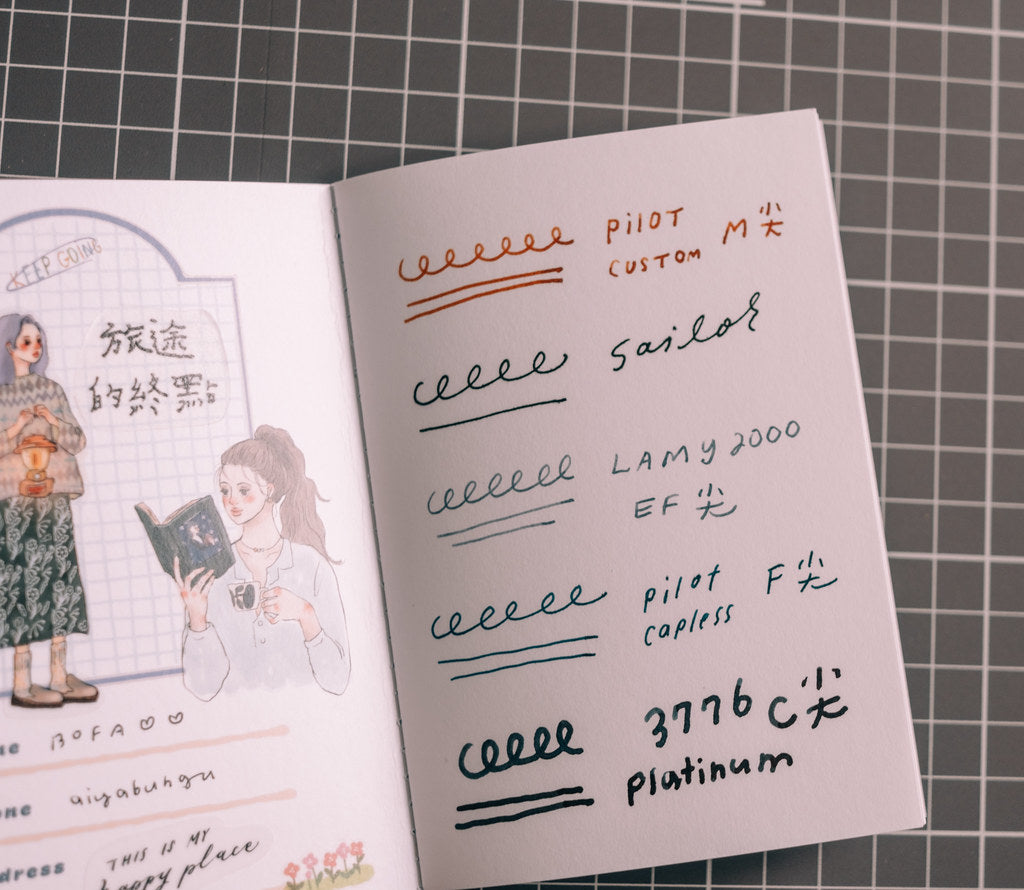 KEEP GOING
旅途
的終點
BOFA
aiyabungu
dress
THIS IS MY
happy place
PILOT
CUSTOM M尖
Sailor
LAMY 2000
EF 尖
pilot F尖
capless
3776 C尖
platinum